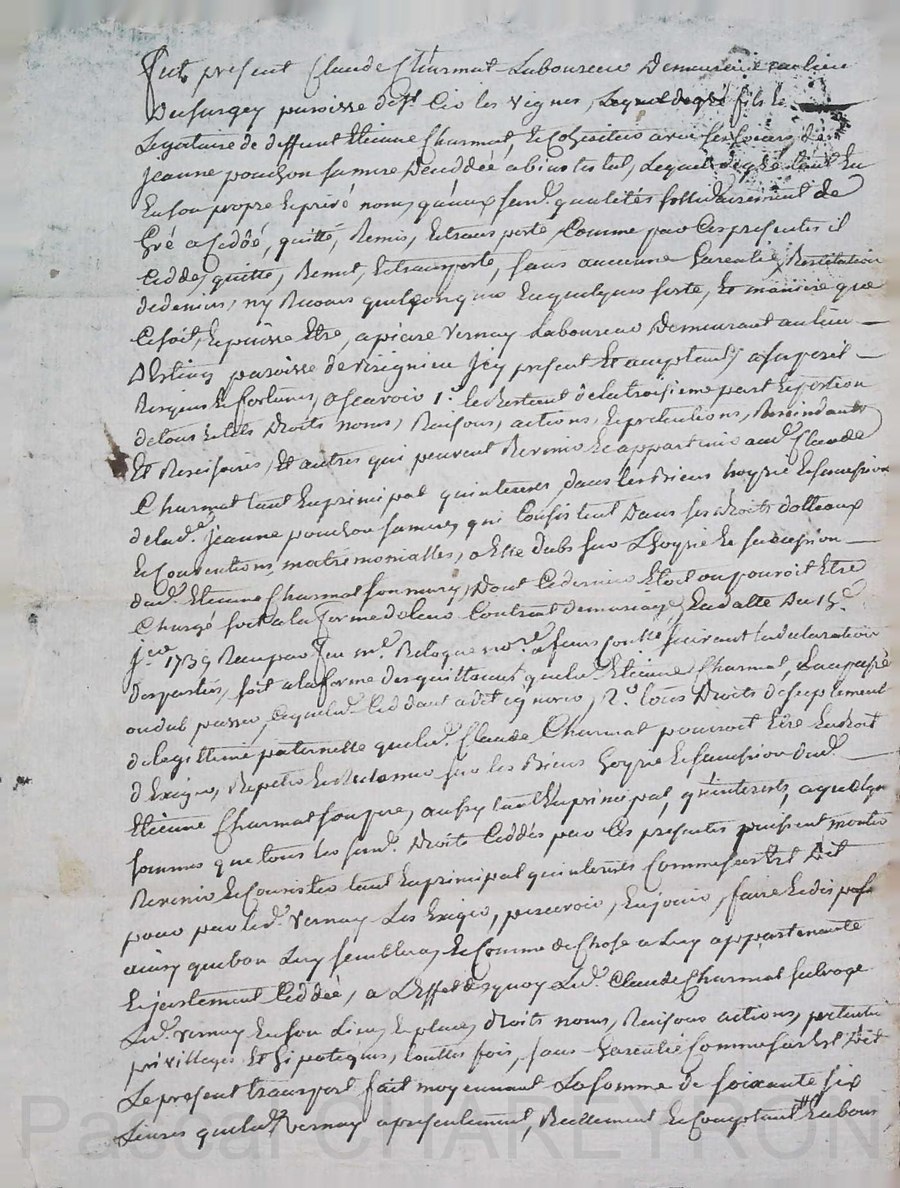 Fut present Claude Charmat Laboureur Demeurant au lieu
Du surgey paroisse de St. Cir les vignes, Lequel de gré fils Et
Legataire de deffunt Etienne Charmat, Et Cohéritier avec ses sœurs de
Jeanne pouchon sa mere Deceddée abintestat, Lequel de gré tant En
En son propre Et privé nom, qu'aux susd. qualités sollidairement de
Gré a Ceddé, quitté, Remis, Et transporté Comme par Ces presentes il
Cedde, quitte, Remet, Et transporte, sans aucunne Garentie, Restitution
de deniers, ny Recours quelconque En quelques sorte, Et maniere que
Ce soit, Et puisse Etre, a pierre Vernay Laboureur Demeurant au lieu
D'Estaing paroisse de virignieu Icy present Et acceptant, a ses peril
Risques Et fortunes, a scavoir 1°. Le Restant de la troisieme part Et portion
de tous Et tels Droits noms, Raisons, actions, Et pretentions, Rescindants
Et Rescisoires, Et autres qui peuvent Revenir Et appartenir aud. Claude
Charmat tant En principal qu'interets, dans les Biens hoyrie Et succession
de lad. Jeanne pouchon sa mere, qui Consistent Dans ses droits dotteaux
Et Conventions matrimonialles, a Elle dubs sur L'hoyrie Et succession
dud. Etienne Charmat son mary, Dont Ce dernier Etoit ou pouroit Etre
Chargé soit a la forme de leur Contrat de mariage, En datte Du 15e.
Jer. 1739 Reçu par feu me. Relogue nore. a suivant la declaration
des parties, soit a la forme des quittances que led. Etienne Charmat, En a passé
ou dub passer, Ce que led. Ceddant a dit ignorer, 2°. tous Droits de suplement
de legittime paternelle que led. Claude Charmat pouroit Etre En droit
d'Exiger, Repeter Et Reclamer sur les Biens hoyrie Et succession dud.
Etienne Charmat son pere, aussy tant En principal, qu'interests, a quelque
sommes que tous les susd. Droits Ceddés par Ces presentes puissent monter
Revenir Et Consister tant En principal qu'interets Comme sus Est Dit
pour par led. Vernay Les Exiger, percevoir, En jouir, faire Et disposer
ainsy que bon Luy semblera, Et Comme de Chose a Luy appartenante
Et justement Ceddée, a L'Effet de quoy Led. Claude Charmat subroge
Led. Vernay En son Lieu, Et place, droits noms, Raisons actions, pretentions
privilleges Et hipoteques, touttes fois, sans Garentie Comme sus Est Dit
Le present transport fait moyennant La somme de soixante six
Livres que led. Vernay a presentement, Reellement Et Comptant En bons
Pascal CHAREYRON